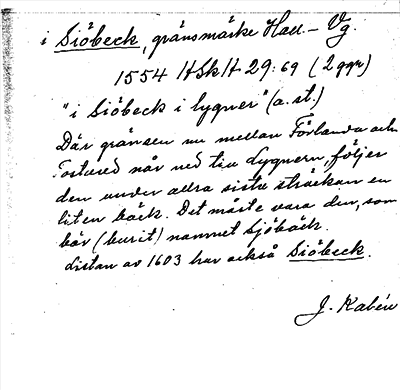 i Siöbeck, gränsmärke Hall.- Vg.
1554 HSkH 29:69 (2 ggr)
"i Siöbeck i lygner" (a. st.)
Där gränsen nu mellan Förlanda och
Tostared når ned till Lygnern, följer
den under allra sista sträckan en
liten bäck. Det måste vara den, som
bär (burit) namnet Sjöbäck.
Listan av 1603 har också Siöbeck.
J. Kalén